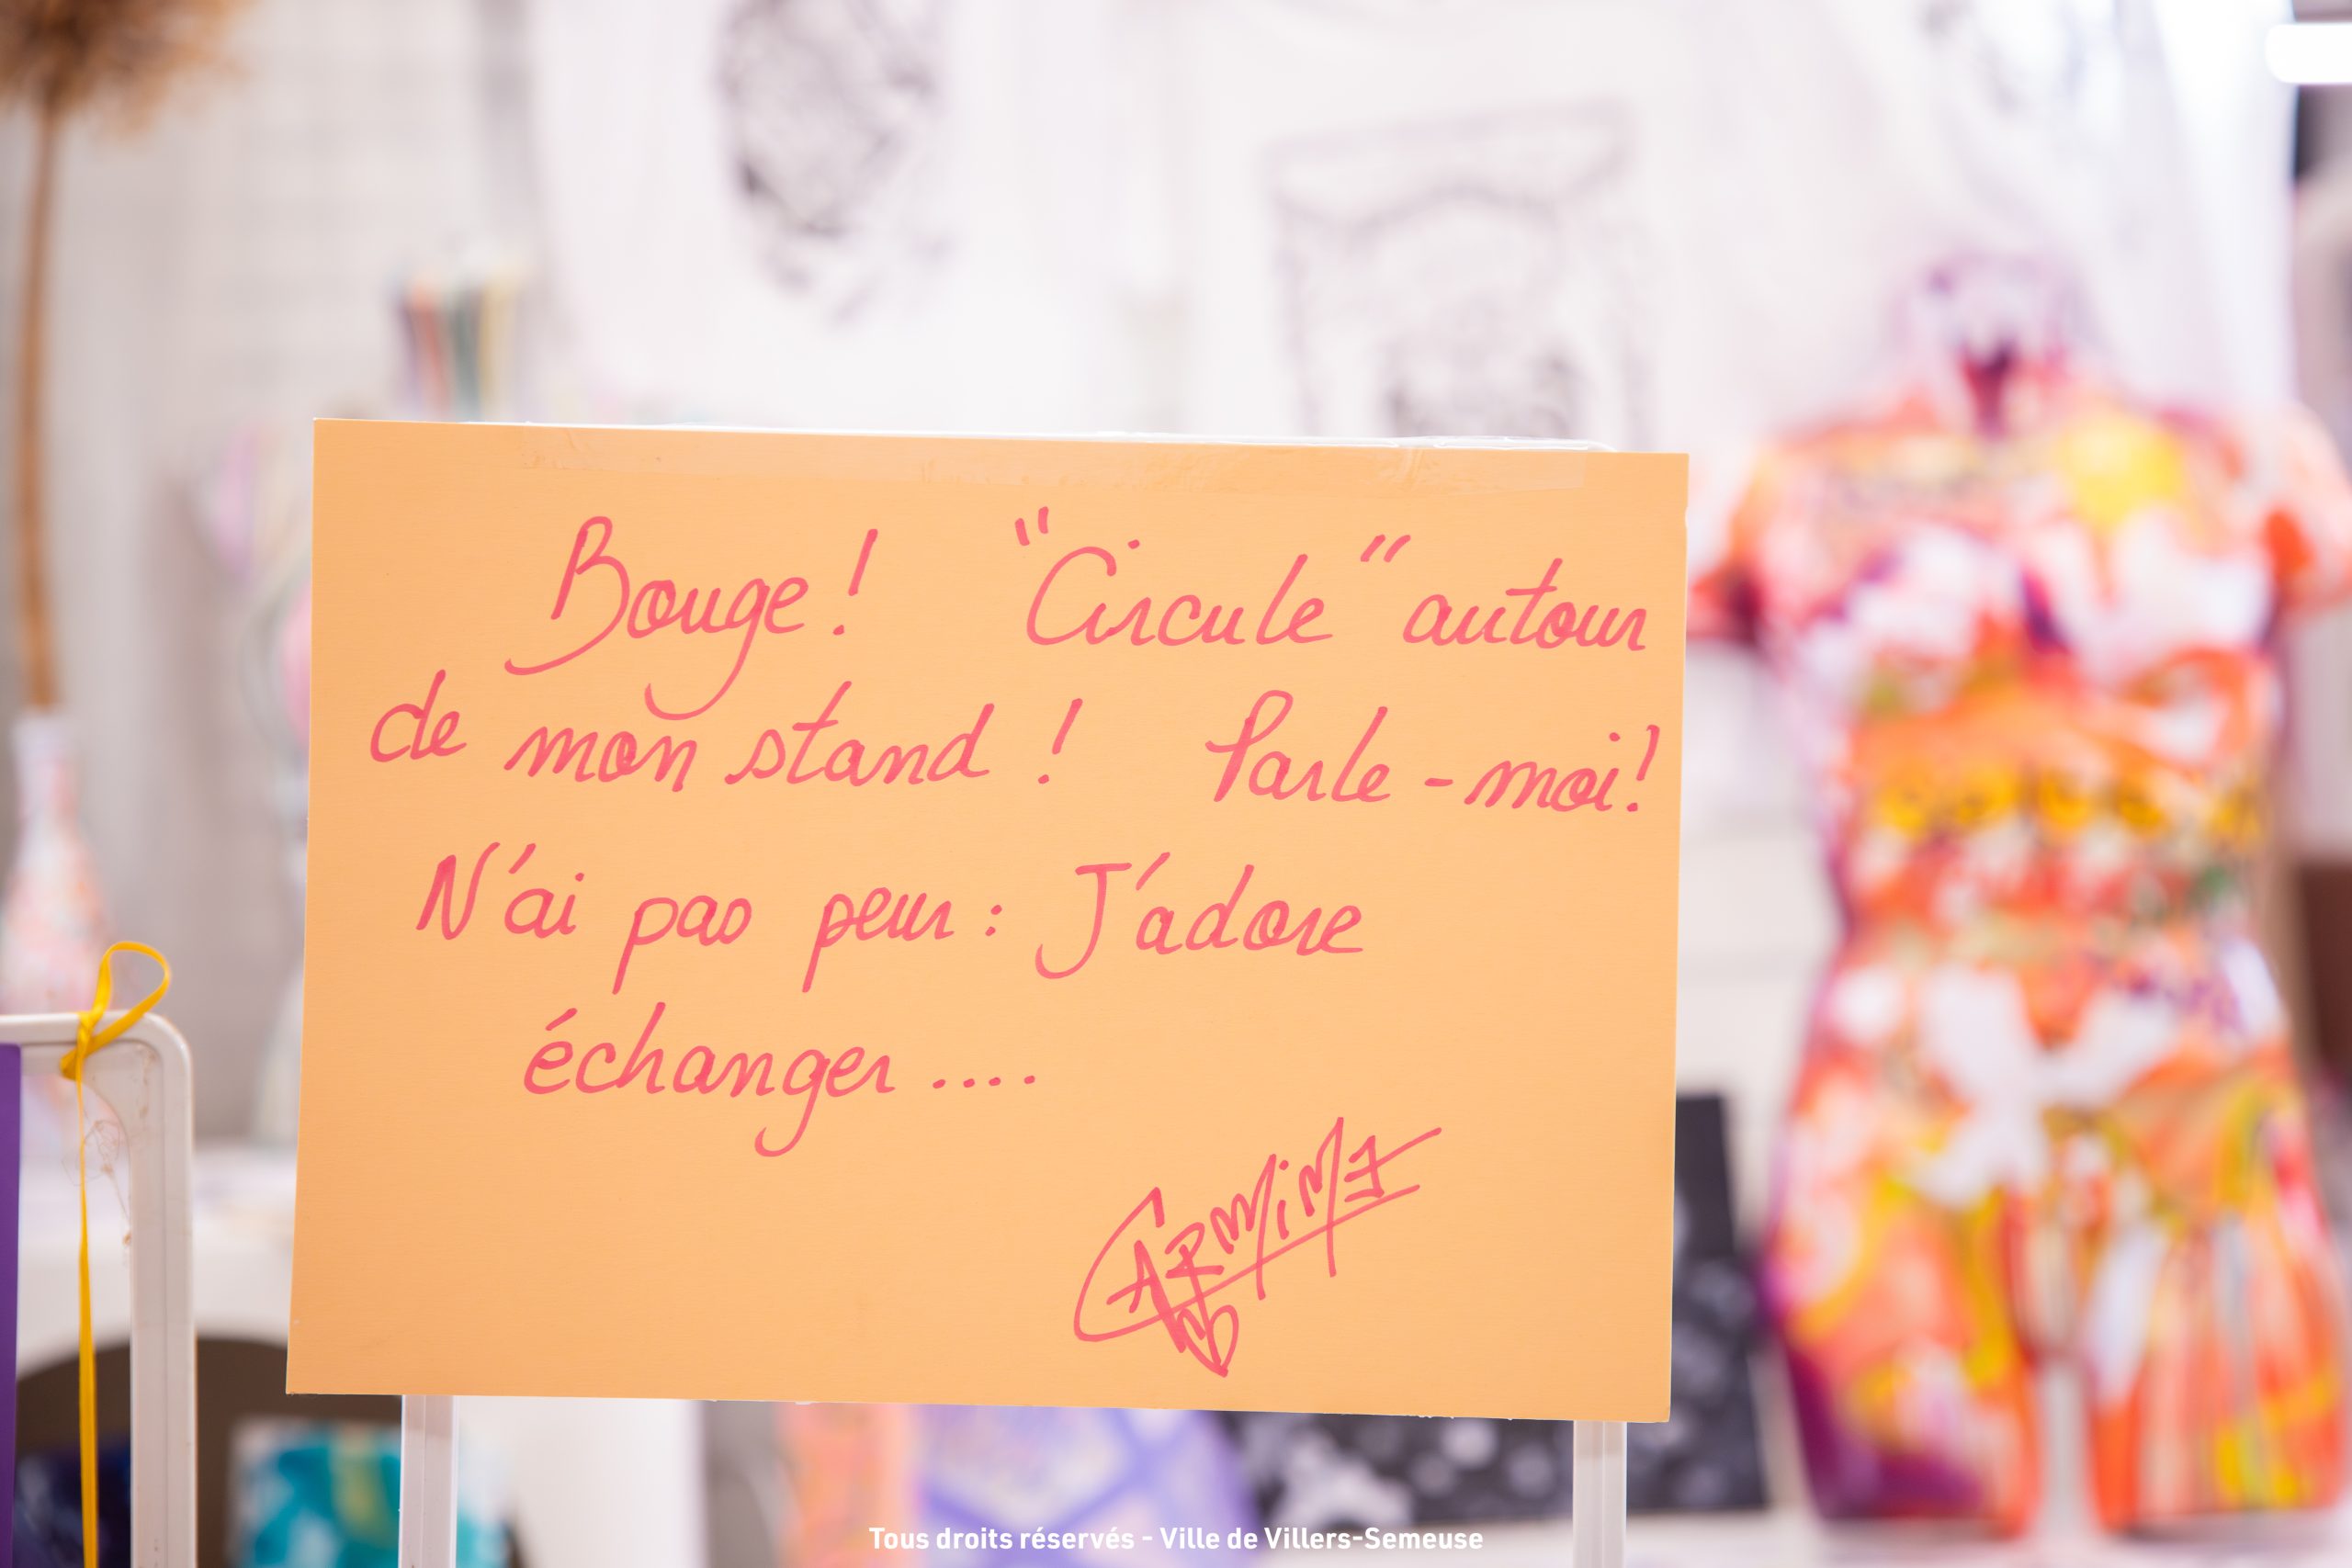 Bouge ! "Circule" autour
de mon stand ! Parle-moi !
N'ai pas peur : J'adore
échanger ....
Tous droits réservés - Ville de Villers-Semeuse